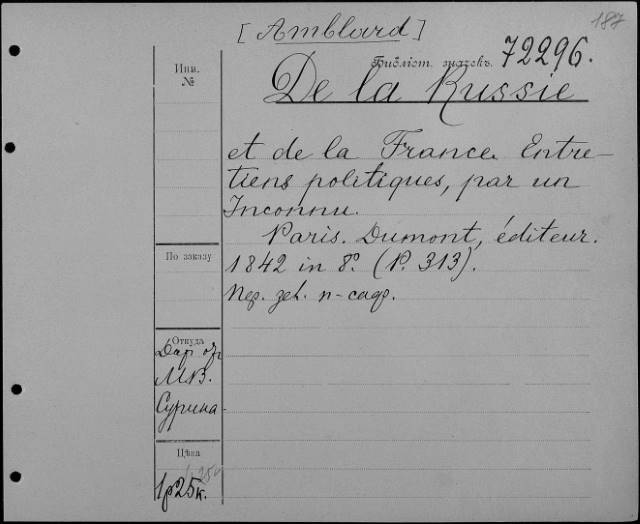 187
[Amblard]
Библіот. значекъ 72296.
De la Russie
et de la France. Entre-
tiens politiques, par un
Inconnu.
Paris. Dumont, éditeur.
1842 in 8º. (P. 313).
Пер. зел. п-сафр.
Инв.
№
По заказу
Откуда
Дар от
М.В.
Сурина
Цѣна
1р 25к.